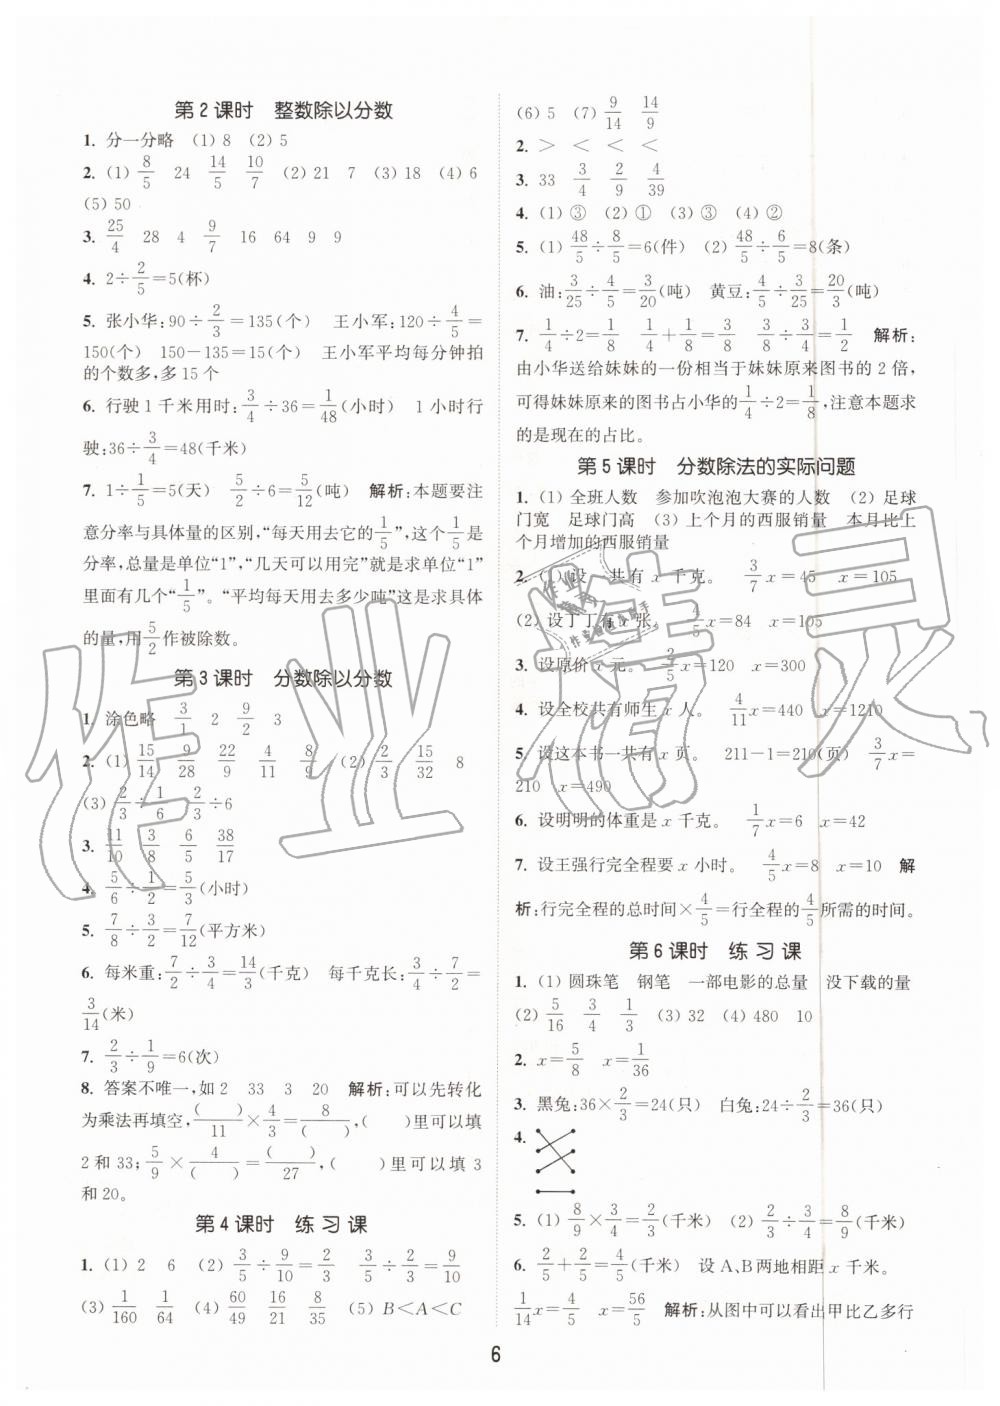 第2课时 整数除以分数
1. 分一分略 (1) 8 (2) 5
2. (1) 8/5 24 14/5 10/7 (2) 21 7 (3) 18 (4) 6
(5) 50
3. 25/4 28 4 9/7 16 64 9 9
4. 2÷2/5=5(杯)
5. 张小华:90÷2/3=135(个) 王小军:120÷4/5=
150(个) 150-135=15(个) 王小军平均每分钟拍
的个数多,多15个
6. 行驶1千米用时:3/4÷36=1/48(小时) 1小时行
驶:36÷3/4=48(千米)
7. 1÷1/5=5(天) 5/2÷6=5/12(吨) 解析:本题要注
意分率与具体量的区别,“每天用去它的1/5”,这个1/5是
分率,总量是单位“1”,“几天可以用完”就是求单位“1”
里面有几个“1/5”。“平均每天用去多少吨”这是求具体
的量,用5/2作被除数。
第3课时 分数除以分数
1. 涂色略 3/1 2 9/2 3
2. (1) 15/14 9/28 22/9 4/11 8/9 (2) 2/3 15/32 8
(3) 2/3÷1/6 2/3÷6
3. 11/10 3/8 6/5 38/17
4. 5/6÷1/2=5/3(小时)
5. 7/8÷3/2=7/12(平方米)
6. 每米重:7/2÷3/4=14/3(千克) 每千克长:3/4÷7/2=
3/14(米)
7. 2/3÷1/9=6(次)
8. 答案不唯一,如2 33 3 20 解析:可以先转化
为乘法再填空,( )/11×4/3=8/( ),( )里可以填
2和33;5/9×4/( )=( )/27,( )里可以填3
和20。
第4课时 练习课
1. (1) 2 6 (2) 3/5÷9/10=2/3 3/5÷2/3=9/10
(3) 1/160 1/64 (4) 60/49 16/21 8/35 (5) B<A<C
(6) 5 (7) 9/14 14/9
2. > < < <
3. 33 3/4 2/9 4/39
4. (1) ③ (2) ① (3) ③ (4) ②
5. (1) 48/5÷8/5=6(件) (2) 48/5÷6/5=8(条)
6. 油:3/25÷4/5=3/20(吨) 黄豆:4/5÷3/25=20/3(吨)
7. 1/4÷2=1/8 1/4+1/8=3/8 3/8÷3/4=1/2 解析:
由小华送给妹妹的一份相当于妹妹原来图书的2倍,
可得妹妹原来的图书占小华的1/4÷2=1/8,注意本题求
的是现在的占比。
第5课时 分数除法的实际问题
1. (1) 全班人数 参加吹泡泡大赛的人数 (2) 足球
门宽 足球门高 (3) 上个月的西服销量 本月比上
个月增加的西服销量
2. (1) 设一共有x千克。 3/7x=45 x=105
(2) 设丁丁有x张。 4/5x=84 x=105
3. 设原价x元。 2/5x=120 x=300
4. 设全校共有师生x人。 4/11x=440 x=1210
5. 设这本书一共有x页。 211-1=210(页) 3/7x=
210 x=490
6. 设明明的体重是x千克。 1/7x=6 x=42
7. 设王强行完全程要x小时。 4/5x=8 x=10 解
析:行完全程的总时间×4/5=行全程的4/5所需的时间。
第6课时 练习课
1. (1) 圆珠笔 钢笔 一部电影的总量 没下载的量
(2) 5/16 3/4 1/3 (3) 32 (4) 480 10
2. x=5/8 x=1/36
3. 黑兔:36×2/3=24(只) 白兔:24÷2/3=36(只)
4.
5. (1) 8/9×3/4=2/3(千米) (2) 2/3÷3/4=8/9(千米)
6. 2/5+2/5=4/5(千米) 设A、B两地相距x千米。
1/14x=4/5 x=56/5 解析:从图中可以看出甲比乙多行
6
作业精灵